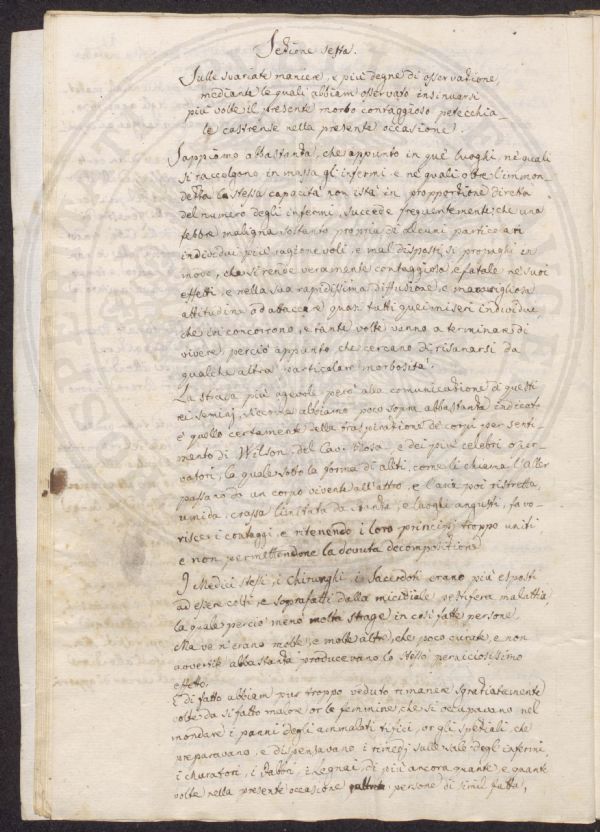 Sezione sesta.
Sulle svariate maniere, e più degne di osservazione,
mediante le quali abbiam osservato insinuarsi
più volte il presente morbo contaggioso petecchia-
le castrense nella presente occasione.
Sappiamo abbastanza, che appunto in que' luoghi, ne' quali
si raccolgono in massa gl'infermi e ne' quali oltre l'immon-
dezza la stessa capacità non istà in propporzione diretta
del numero degli infermi, succede frequentemente, che una
febbre maligna soltanto propria di alcuni particolari
individui più cagionevoli, e mal disposti, si propaghi in
move, che si rende veramente contaggiosa, e fatale ne' suoi
effetti, e nella sua rapidissima diffusione, e maravigliosa
attitudine ad attaccare quasi tutti quei miseri individui,
che ivi concorrono, e tante volte vanno a terminare di
vivere perciò appunto, che cercano di risanarsi da
qualche altra particolar morbosità.
La strada più agevole però alla comunicazione di questi
rei semi, siccome abbiamo poco sopra abbastanza indicato
è quello certamente della traspirazione de' corpi per senti-
mento di Wilson, del Cav. Rosa, e dei più celebri osser-
vatori, la quale sotto la forma di aliti, come li chiama l'Aller
passano da un corpo vivente all'altro, e l'aria poi ristretta,
umida, crassa limitata da stanze, e luoghi angusti, favo-
risce i contaggi, e ritenendo i loro principj troppo uniti,
e non permettendone la dovuta decomposizione.
I Medici stessi, i Chirurghi, i Sacerdoti erano più esposti
ad esser colti, e soprafatti dalla micidiale pestifera malattia,
la quale perciò menò molta strage in così fatte persone.
Ma ve n'erano molte, e molte altre, che poco curate, e non
avvertite abbastanza producevano lo stesso perniciosissimo
effetto.
E di fatto abbiam pur troppo veduto rimanere sgraziatamente
colte da sì fatto malore or le femmine, che si occupavano nel
mondare i panni degli ammalati tifici, or gli speziali che
preparavano, e dispensavano i rimedj sulle sale degl'infermi,
i curatori, i fabbri, i legnai, di più ancora quante e quante
volte nella presente occasione persone di simil fatta,